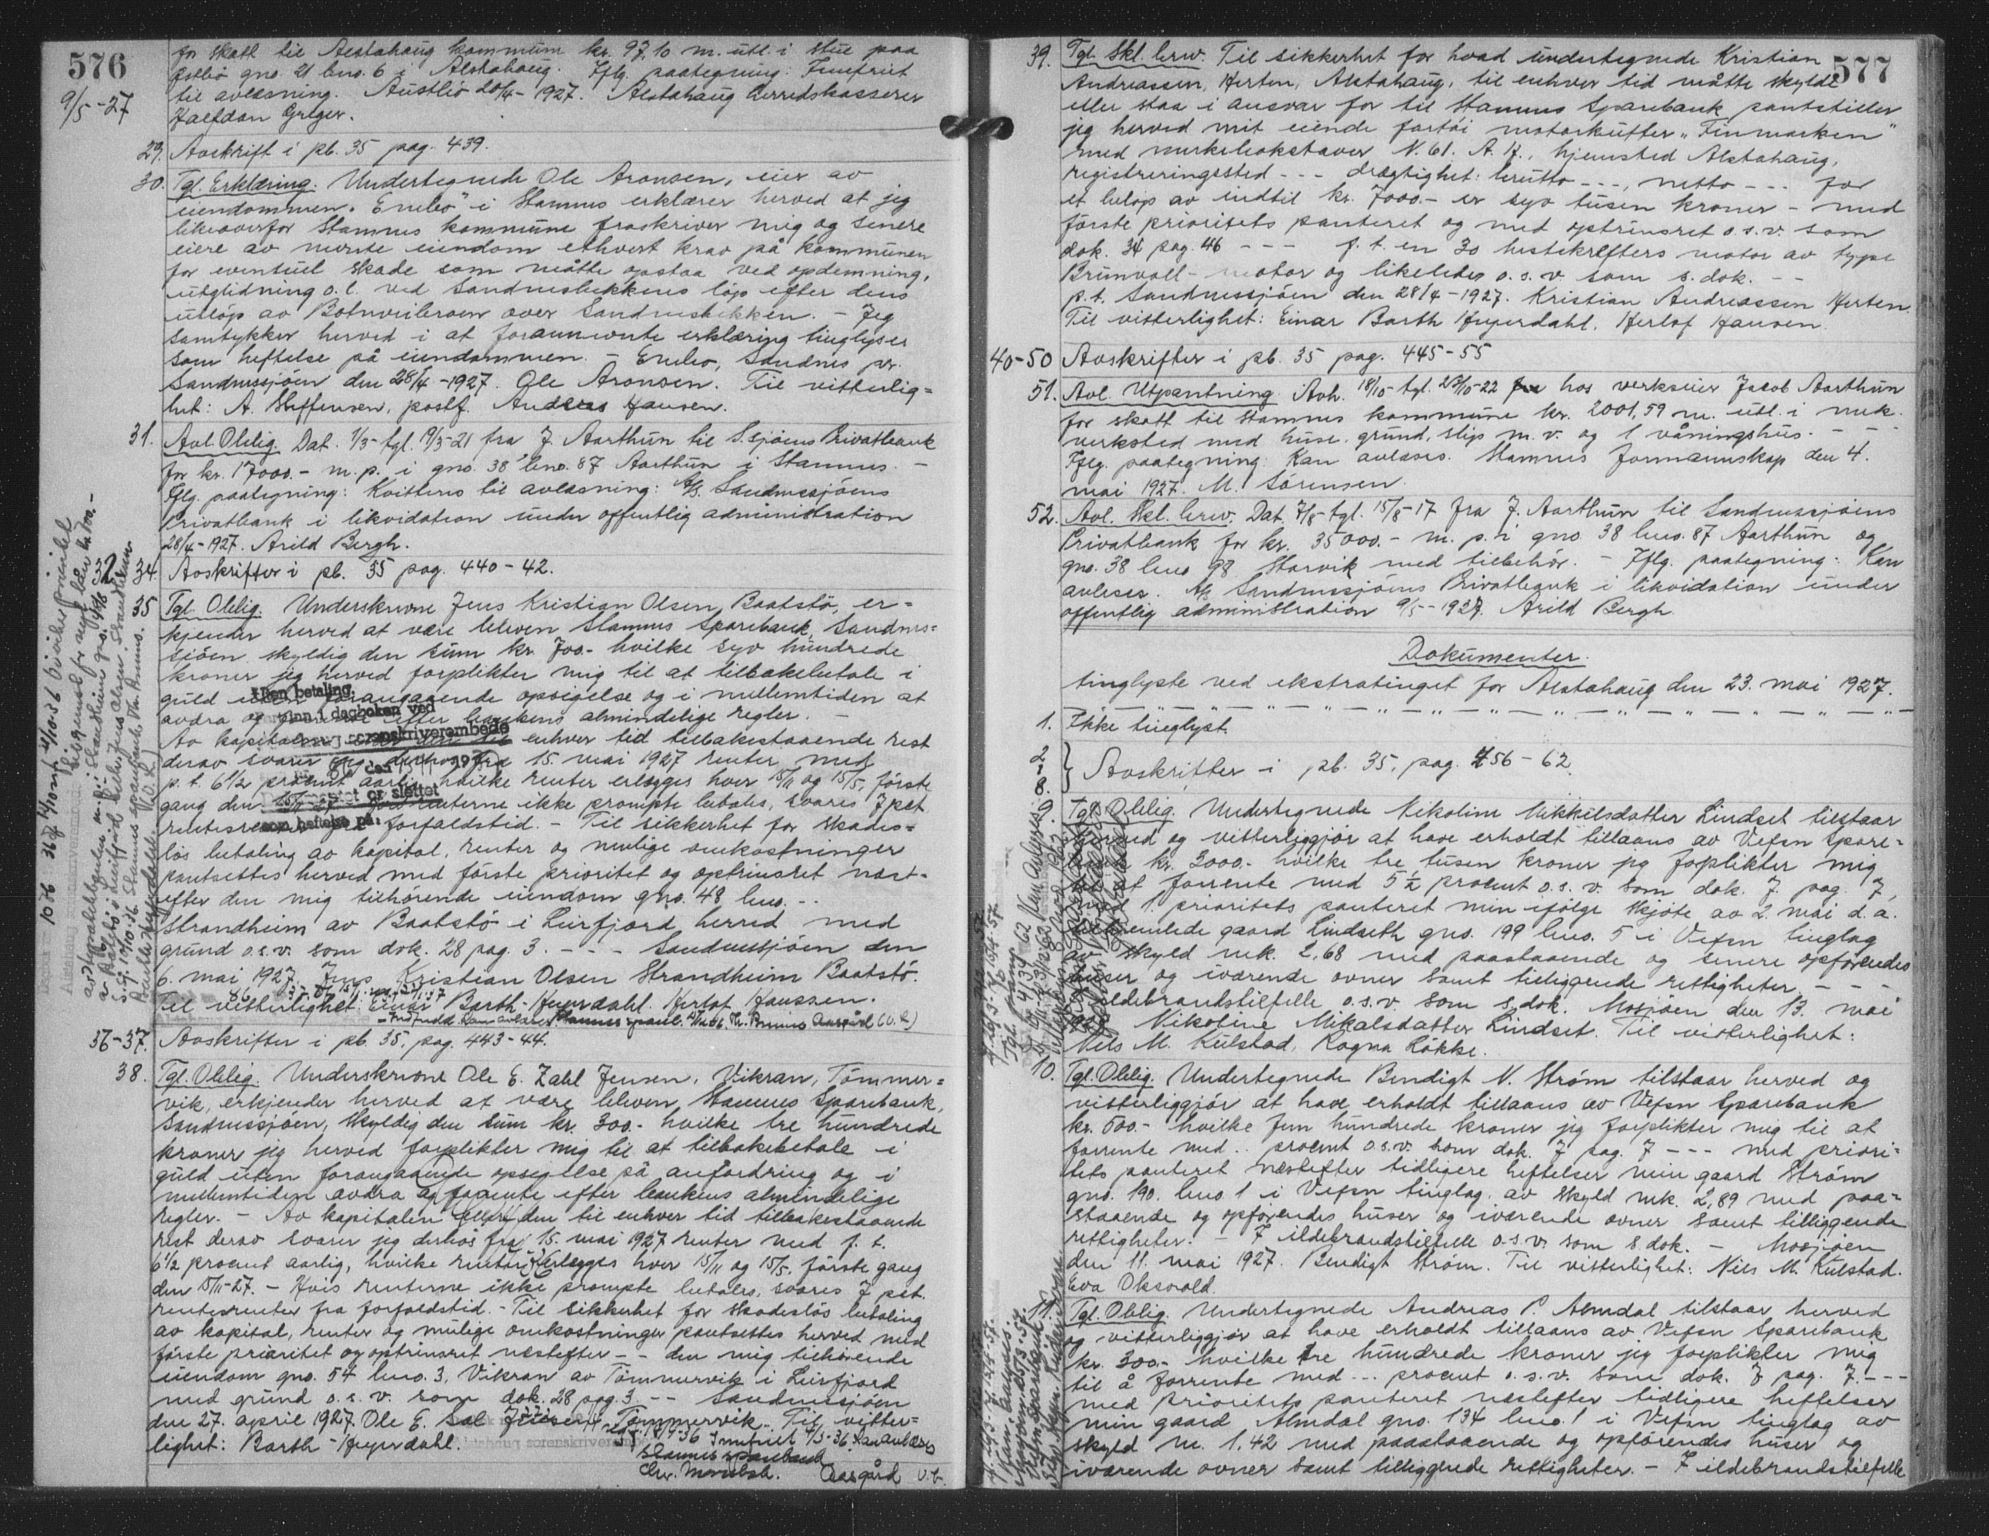 576
9/5-27
for skatt til Alstahaug kommune kr. 97.10 m. utl. i stue paa
Østbø gno. 21 bno. 6 i Alstahaug. Iflg. paategning: Innfriet
til avlæsning. Austbø 20/4-1927. Alstahaug Herredskasserer
Halfdan Greger.
29. Avskrift i pb. 35 pag. 439.
30. Tgl. Erklæring. Undertegnede Ole Aronsen, eier av
eiendommen "Enebo" i Stamnes erklærer herved at jeg
likeoverfor Stamnes kommune fraskriver mig og senere
eiere av nevnte eiendom ethvert krav på kommunen
for eventuel skade som måtte opstaa ved opdemning,
utglidning o.l. ved Sandnesbekkens løp efter dens
utløp av Botnveibroen over Sandnesbekken. - Jeg
samtykker herved i at forannevnte erklæring tinglyses
som heftelse på eiendommen. - Enebo, Sandnes pr.
Sandnessjøen den 28/4-1927. Ole Aronsen. Til vitterlig=
het: A. Steffensen, postf. Anders Hansen.
31. Avl. Oblig. Dat. 1/3- tgl. 19/3-21 fra J. Aarthun til S.sjøens Privatbank
for kr. 17000.- m. p. i gno. 38 bno. 87 Aarthun i Stamnes. -
Iflg. paategning: Kvitteres til avlæsning: A/S. Sandnessjøens
Privatbank i likvidation under offentlig administration
28/4-1927. Arild Bergh.
32-34. Avskrifter i pb. 35 pag. 440-42.
35. Tgl. Oblig. Underskrevne Jens Kristian Olsen, Baatstø, er=
kjender herved at være bleven Stamnes Sparebank, Sandnes=
sjøen skyldig den sum kr. 700.- hvilke syv hundrede
kroner jeg herved forplikter mig til at tilbakebetale i
guld uten forangaaende opsigelse og i mellemtiden at
avdra og efter bankens almindelige regler. -
Av kapitalen enhver tid tilbakestaaende rest
derav svarer jeg derhos fra 15. mai 1927 renter med
p. t. 6 1/2 procent aarlig, hvilke renter erlægges hver 15/11 og 15/5, første
gang den 15/11-27. renterne ikke prompte betales, svares 7 pct.
forfaldstid. - Til sikkerhet for skades=
løs betaling av kapital, renter og mulige omkostninger
pantsettes herved med første prioritet og optrinsret næst-
efter den mig tilhørende eiendom gno. 48 bno. --
Strandheim av Baatstø i Leirfjord herred med
grund o.s.v. som dok. 28 pag. 3. - - - Sandnessjøen den
6. mai 1927. Jens Kristian Olsen Strandheim Baatstø.
Til vitterlighet: Einar Barth-Heyerdahl. Herlof Hanssen.
36-37. Avskrifter i pb. 35, pag. 443-44.
38. Tgl. Oblig. Underskrevne Ole E. Zahl Jensen, Vikran, Tømmer=
vik, erkjender herved at være bleven Stamnes Sparebank,
Sandnessjøen, skyldig den sum kr. 300.- hvilke tre hundrede
kroner jeg herved forplikter mig til at tilbakebetale i
guld uten forangaaende opsigelse på anfordring og i
mellemtiden avdra og forrente efter bankens almindelige
regler. - Av kapitalen eller den til enhver tid tilbakestaaende
rest derav svarer jeg derhos fra 15. mai 1927 renter med p. t.
6 1/2 procent aarlig, hvilke renter erlægges hver 15/11 og 15/5. første gang
den 15/11-27. - Hvis renterne ikke prompte betales, svares 7 pct.
rentesrenter fra forfaldstid. - Til sikkerhet for skadesløs betaling
av kapital, renter og mulige omkostninger pantsettes herved med
første prioritet og optrinsret næstefter -- den mig tilhørende
eiendom gno. 54 bno. 3, Vikran av Tømmervik i Leirfjord
med grund o. s. v. som dok. 28 pag. 3 -- Sandnessjøen
den 27. april 1927. Ole E. Zal Jensen Tømmervik. Til vitter=
lighet: Barth-Heyerdahl.
Stamnes sparebank
Aasgård
577
39. Tgl. Skl. brev. Til sikkerhet for hvad undertegnede Kristian
Andreassen, Herten, Alstahaug, til enhver tid måtte skylde
eller staa i ansvar for til Stamnes Sparebank pantstiller
jeg herved mit eiende fartøi motorkutter "Finmarken"
med merkebokstaver N. 61. A. H., hjemsted Alstahaug,
registreringssted --- drægtighet: brutto ---, netto --- for
et beløp av indtil kr. 7000.- er syv tusen kroner - med
første prioritets panteret og med optrinsret o.s.v. som
dok. 34 pag. 46 --- p. t. en 30 hestekrefters motor av type
Brunvoll-motor og likeledes o. s. v som s. dok. -
p. t. Sandnessjøen den 28/4-1927. Kristian Andreassen Herten
Til vitterlighet: Einar Barth Heyerdahl. Herlof Hansen.
40-50 Avskrifter i pb. 35 pag. 445-55
51. Avl. Utpantning. Avh. 18/10- tgl. 23/10-22 hos verkseier Jacob Aarthun
for skatt til Stamnes kommune kr. 2001,59 m. utl. i mek.
verksted med huse, grund, slip m. v. og 1 våningshus. - -
Iflg. paategning: Kan avlæses. Stamnes formannskap den 4.
mai 1927. M. Sørensen.
52. Avl. Skl. brev. Dat. 7/8- tgl. 15/8-17 fra J. Aarthun til Sandnessjøens
Privatbank for kr. 35000.- m. p. i gno. 38 bno. 87 Aarthun og
gno. 38 bno 98 Storvik med tilbehør. - Iflg. paategning: Kan
avlæses. A/S Sandnessjøens Privatbank i likvidation under
offentlig administration 9/5-1927. Arild Bergh.
Dokumenter.
tinglyste ved ekstratinget for Alstahaug den 23. mai 1927.
1. Ikke tinglyst.
2-8. Avskrifter i pb. 35, pag. 456-62.
9. Tgl. Oblig. Undertegnede Nikoline Mikkelsdatter Lindset tilstaar
herved og vitterliggjør at have erholdt tillaans av Vefsn Spare-
kr. 3000.- hvilke tre tusen kroner jeg forplikter mig
forrente med 5 1/2 procent o. s. v. som dok. 7 pag. 7,
1. prioritets panteret min ifølge skjøte av 2. mai d. a.
gaard Lindseth gno. 199 bno. 5 i Vefsn tinglag
av skyld mk. 2,68 med paastaaende og senere opførendes
huser og iværende ovner samt tilliggende rettigheter - - -
ildebrandstilfelle o.s.v. som s. dok. Mosjøen den 13. mai
Nikoline Mikalsdatter Lindset. Til vitterlighet:
Nils M. Kulstad, Ragna Løkke.
10. Tgl. Oblig. Undertegnede Bendigt N. Strøm tilstaar herved og
vitterliggjør at have erholdt tillaans av Vefsn Sparebank
kr. 500.- hvilke fem hundrede kroner jeg forplikter mig til at
forrente med .. procent o.s.v. som dok. 7 pag. 7 --- med priori=
tets panteret næstefter tidligere heftelser min gaard Strøm
gno. 190. bno. 1 i Vefsn tinglag av skyld mk. 2,89 med paa=
staaende og opførendes huser og iværende ovner samt tilliggende
rettigheter. - I ildebrandstilfelle o.s.v. som s. dok. - Mosjøen
den 11. mai 1927. Bendigt Strøm. Til vitterlighet: Nils M. Kulstad.
Eva Oksvold.
11. Tgl. Oblig. Undertegnede Andreas P. Almdal tilstaar herved
og vitterliggjør at have erholdt tillaans av Vefsn Sparebank
kr. 300.- hvilke tre hundrede kroner jeg forplikter mig
til å forrente med ... procent o. s. v. som dok. 7 pag. 7. ---
med prioritets panteret næstefter tidligere heftelser
min gaard Almdal gno. 134 bno. 1 i Vefsn tinglag av
skyld m. 1,42 med paastaaende og opførendes huser og
iværende ovner samt tilliggende rettigheter. - I ildebrandstilfelle